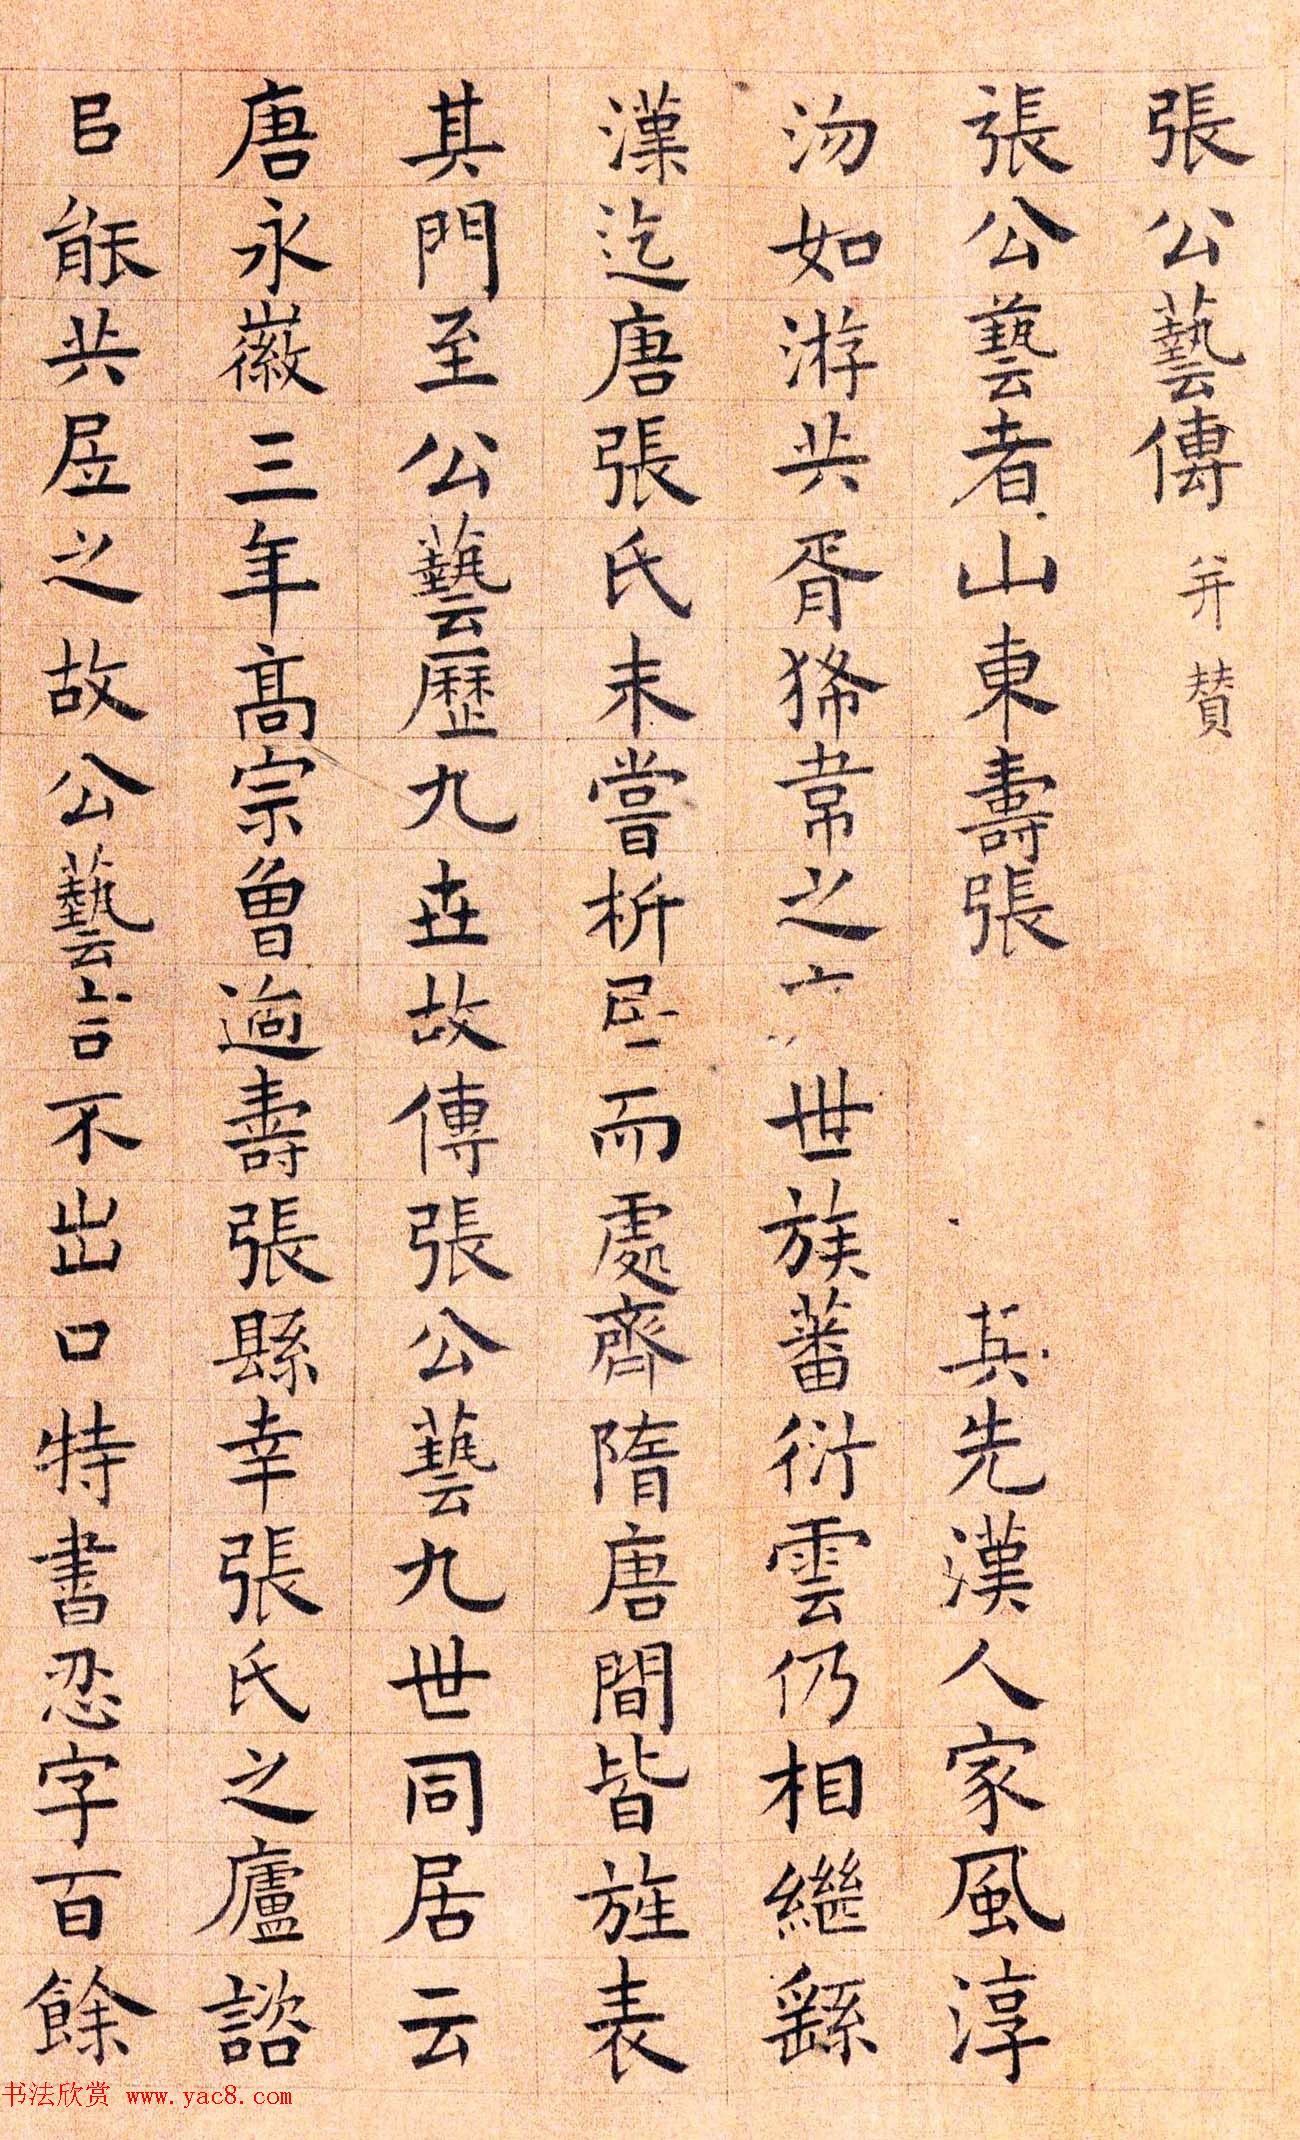 張公藝傳 并贊
張公藝者山東壽張其先漢人家風淳
沕如游共胥狶韋之世族蕃衍雲仍相繼繇
漢迄唐張氏未嘗析居而處齊隋唐間皆旌表
其門至公藝歷九世故傳張公藝九世同居云
唐永徽三年高宗曾過壽張縣幸張氏之廬諮
㠯能共居之故公藝言不出口特書忍字百餘
书法欣赏 www.yac8.com